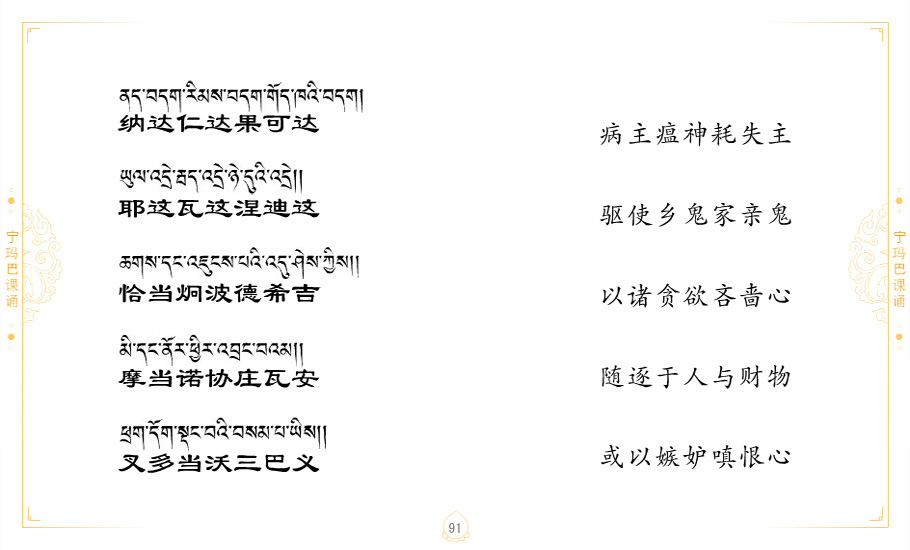 ནད་བདག་རིམས་བདག་གོད་ཁའི་བདག།
纳达仁达果可达
病主瘟神耗失主
ཡུལ་འདྲེ་རྒད་འདྲེ་ཉེ་དུའི་འདྲེ།།
耶这瓦这涅迪这
驱使乡鬼家亲鬼
ཆགས་དང་འཇུངས་པའི་འདུ་ཤེས་ཀྱིས།།
恰当炯波德希吉
以诸贪欲吝啬心
མི་དང་ནོར་ཕྱིར་འབྲང་བའམ།།
摩当诺协庄瓦安
随逐于人与财物
ཕྲག་དོག་སྡང་བའི་བསམ་པ་ཡིས།།
叉多当沃三巴义
或以嫉妒嗔恨心
宁玛巴课诵
宁玛巴课诵
91